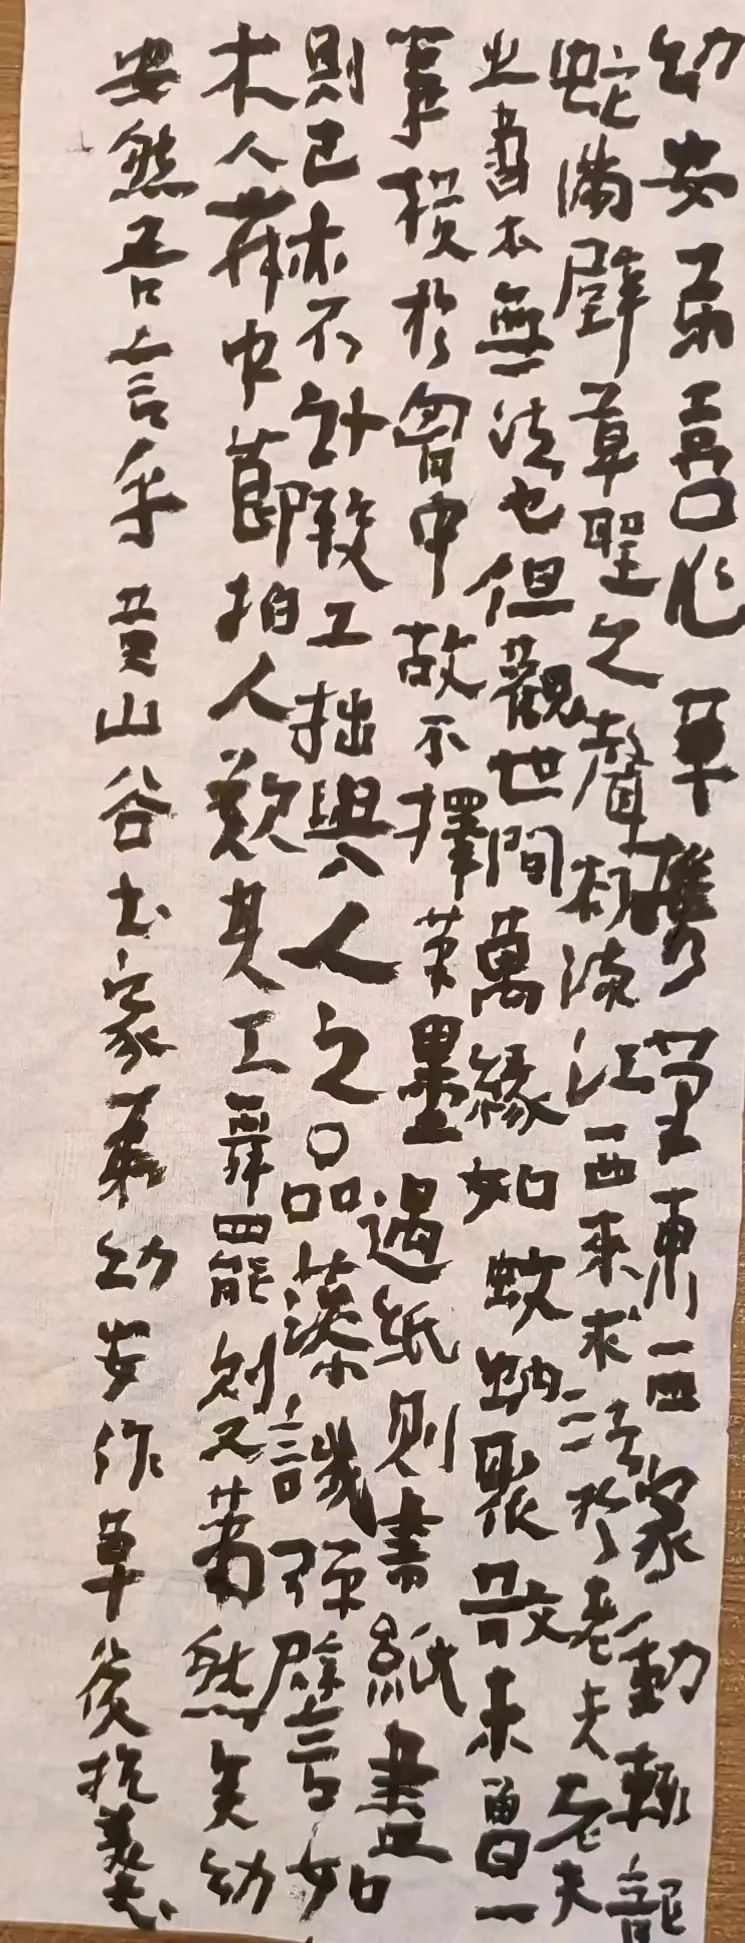 幼安弟喜作草攜筆東西家動輒龍
蛇滿壁草聖之聲欲滿江西來求法於老夫老夫
之書本無法也但觀世間萬緣如蚊蚋聚散未曾一
事橫於胷中故不擇筆墨遇紙則書紙盡
則已亦不計較工拙與人之品藻譏彈譬如
木人舞中節拍人歎其工舞罷則又蕭然矣幼
安然吾言乎黃山谷書家弟幼安作草後